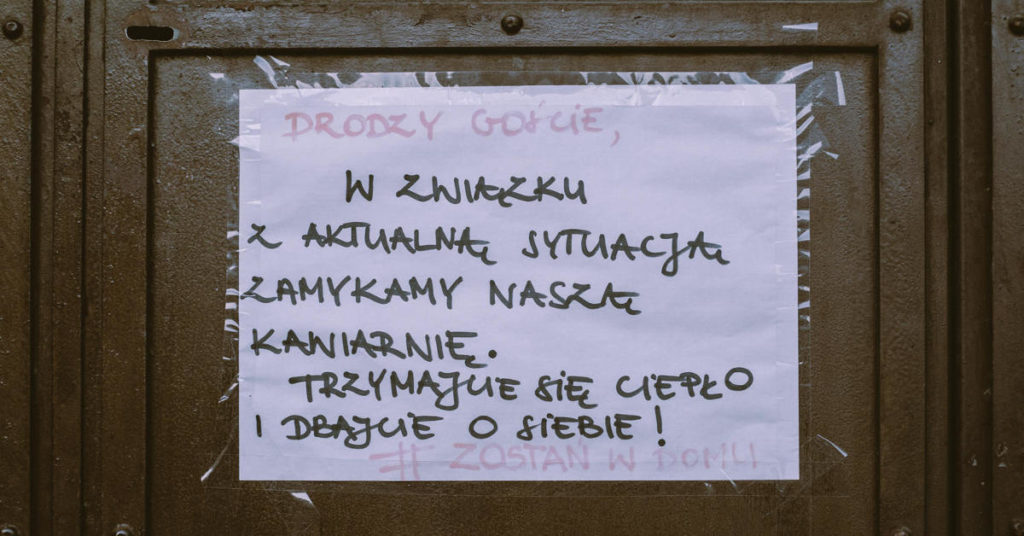 DRODZY GOŚCIE,
W ZWIĄZKU
Z AKTUALNĄ SYTUACJĄ
ZAMYKAMY NASZĄ
KAWIARNIĘ.
TRZYMAJCIE SIĘ CIEPŁO
I DBAJCIE O SIEBIE!
# ZOSTAŃ W DOMU